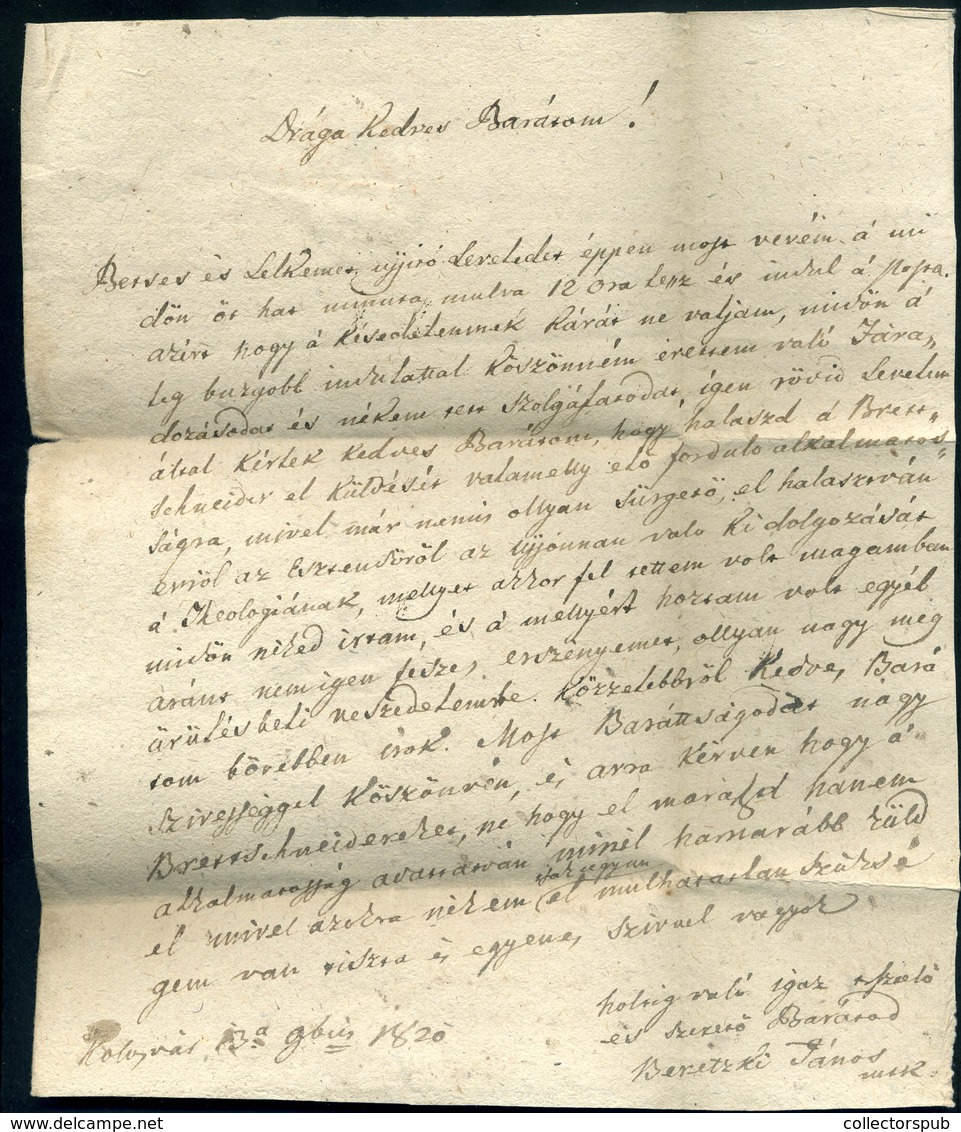 Drága Kedves Barátom!
Betses és Lelkemet ujjitó Leveledet éppen most vevém á mi
dön öt hat minuta mulva 12 ora lesz és indul á Posta.
azért hogy á Késedelemnek Kárát ne valjam, midön á
leg buzgobb indulattal Köszönném érettem való Fára„
dozásodat és nékem tett Szolgálatodat, igen rövid Levelem
által Kérlek Kedves Barátom, hogy halaszd á Brett„
schneider el Küldését valamelly elö forduló alkalmatos„
ságra, mivel már nemis ollyan sürgetö, el halasztván
erröl az Esztendöröl az Ujjonnan valo Ki dolgozását
á Theologiának, mellyet akkor fel tettem volt magamban
midön néked irtam, és á mellyért hoztam volt egyéb
aránt nem igen fészes erszényemet, ollyan nagy meg
ürülésbeli veszedelembe. Közzelebbröl Kedves Bará
tom bövebben irok. Most Baráttságodat nagy
Szivességgel Köszönvén, és arra Kérven hogy á
Brettschneidereket, ne hogy el marafzd hanem
alkalmatosság adattatván minél hamarább küld
el mivel azokra nékem
el mulhatatlan Szüksé
gem van tiszta és egyenes szivvel vagyok
holtig való igaz tisztelö
és szeretö Barátod
Beretzki János
mk.
Kolosvár 13ª 9bris 1820
collectorspub